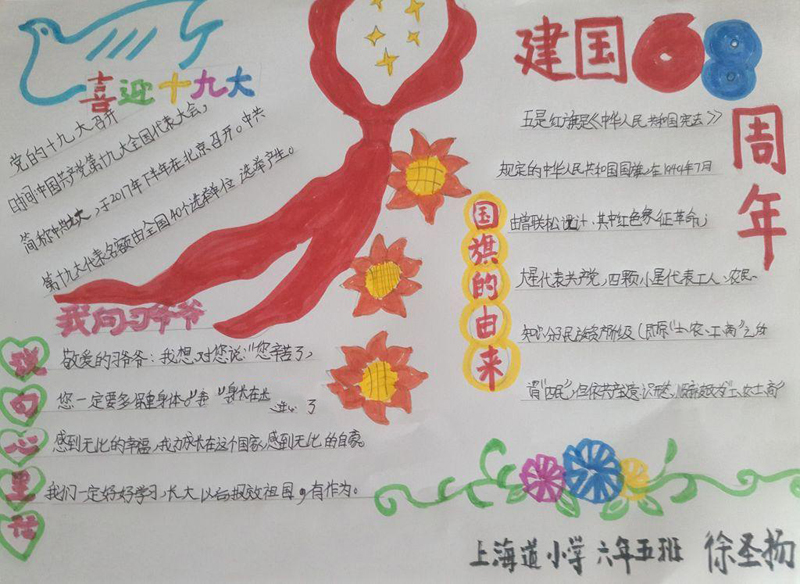 喜迎十九大
党的十九大召开
时间中国共产党第十九大全国代表大会,
简称中共十九大,于2017年下半年在北京召开。中共
第十九大代表名额由全国40个选举单位选举产生。
我向习爷爷
说句心里话
敬爱的习爷爷:我想对您说:"您辛苦了,
您一定要多保重身体。
感到无比的幸福,我为成长在这个国家,感到无比的自豪。
我们一定好好学习,长大以后报效祖国,有作为。
建国68
周年
国旗的由来
五星红旗是《中华人民共和国宪法》
规定的中华人民共和国国旗,在1949年7月
由曾联松设计、其中红色象征革命;
大星代表共产党,四颗小星代表工人、农民、
上海道小学 六年五班 徐圣扬